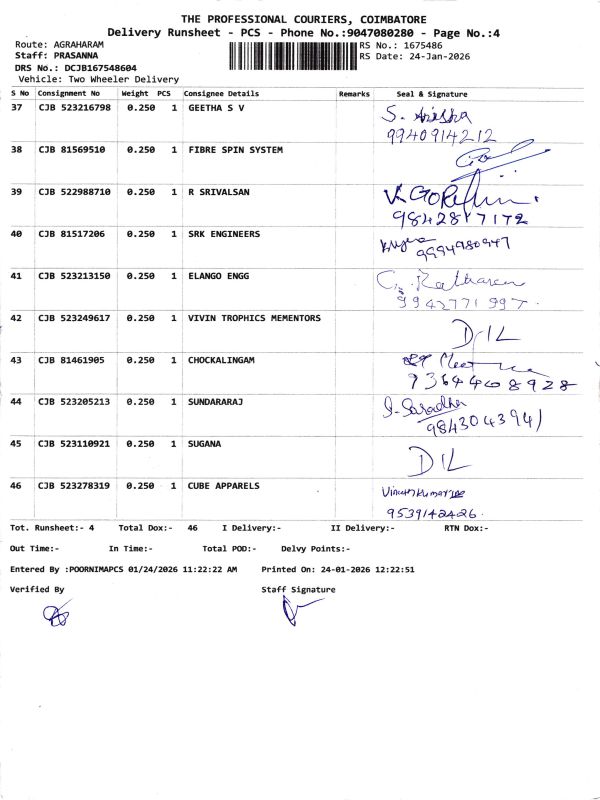 THE PROFESSIONAL COURIERS, COIMBATORE
Delivery Runsheet - PCS - Phone No.:9047080280 - Page No.:4
Route: AGRAHARAM RS No.: 1675486
Staff: PRASANNA RS Date: 24-Jan-2026
DRS No.: DCJB167548604
Vehicle: Two Wheeler Delivery
S No Consignment No Weight PCS Consignee Details Remarks Seal & Signature
37 CJB 523216798 0.250 1 GEETHA S V S.
9940914212
38 CJB 81569510 0.250 1 FIBRE SPIN SYSTEM
39 CJB 522988710 0.250 1 R SRIVALSAN
9842817172
40 CJB 81517206 0.250 1 SRK ENGINEERS
9994980947
41 CJB 523213150 0.250 1 ELANGO ENGG
9942771997.
42 CJB 523249617 0.250 1 VIVIN TROPHICS MEMENTORS D/L
43 CJB 81461905 0.250 1 CHOCKALINGAM
9364408928
44 CJB 523205213 0.250 1 SUNDARARAJ S. Saradha
9843043941
45 CJB 523110921 0.250 1 SUGANA D/L
46 CJB 523278319 0.250 1 CUBE APPARELS
9539142426.
Tot. Runsheet:- 4 Total Dox:- 46 I Delivery:- II Delivery:- RTN Dox:-
Out Time:- In Time:- Total POD:- Delvy Points:-
Entered By :POORNIMAPCS 01/24/2026 11:22:22 AM Printed On: 24-01-2026 12:22:51
Verified By Staff Signature